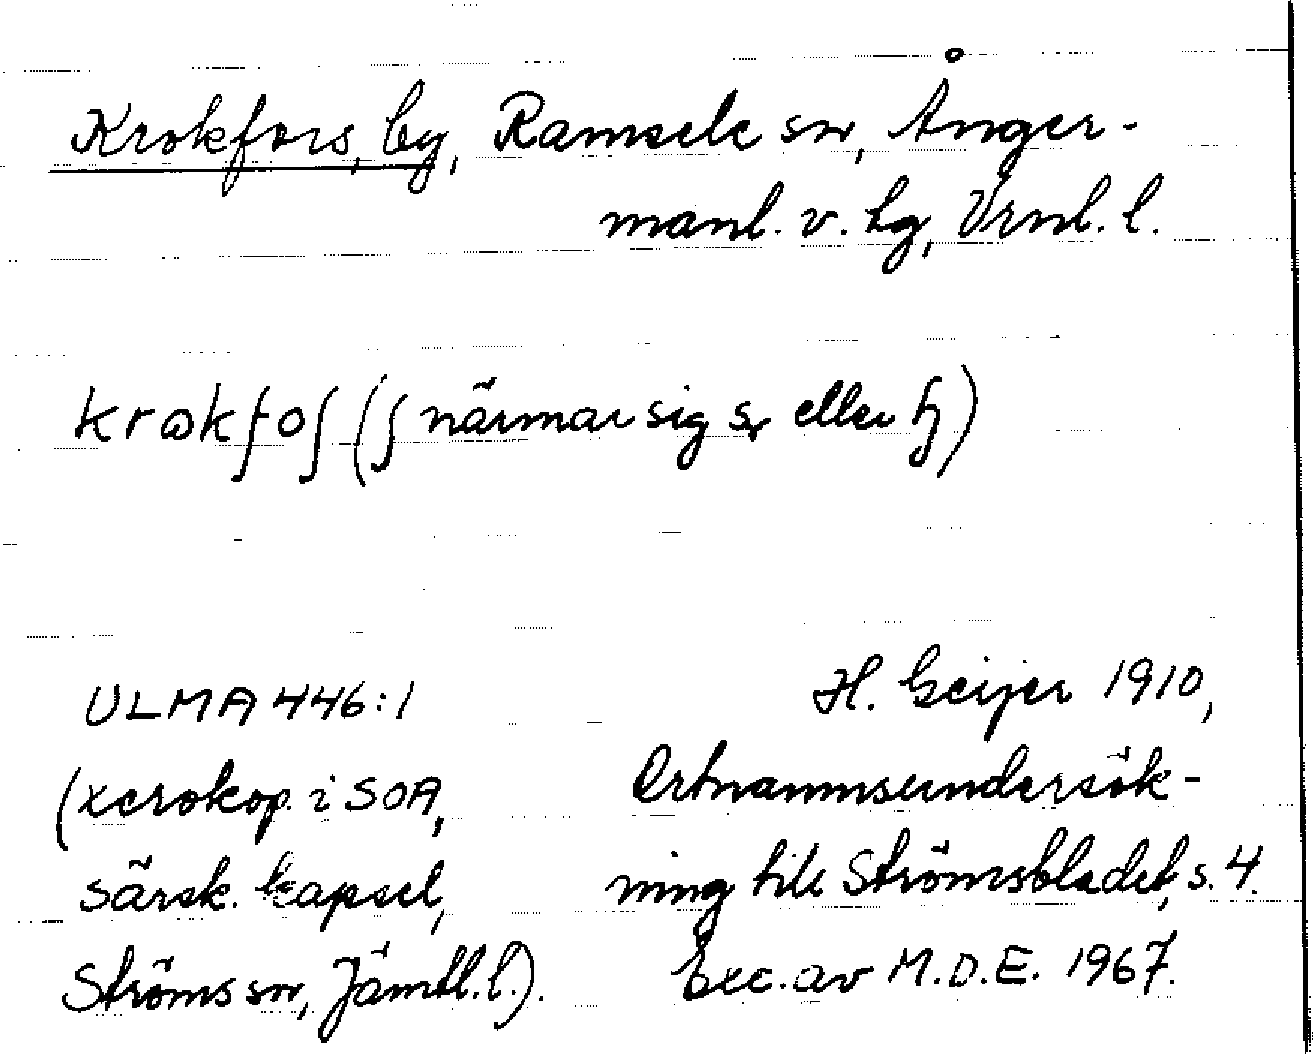 Krokfors, by, Ramsele sn, Ånger-
manl. v. tg, Vrnl. l.
krɷkfoʃ (ʃ närmar sig eller)
ULMA 446:1
(xerokop. i SOA,
särsk. kapsel,
Ströms sn, Jämtl. l.).
H. Geijer 1910,
Ortnamnsundersök-
ning till Strömsbladet, s. 4.
Exc. av M.D.E. 1967.